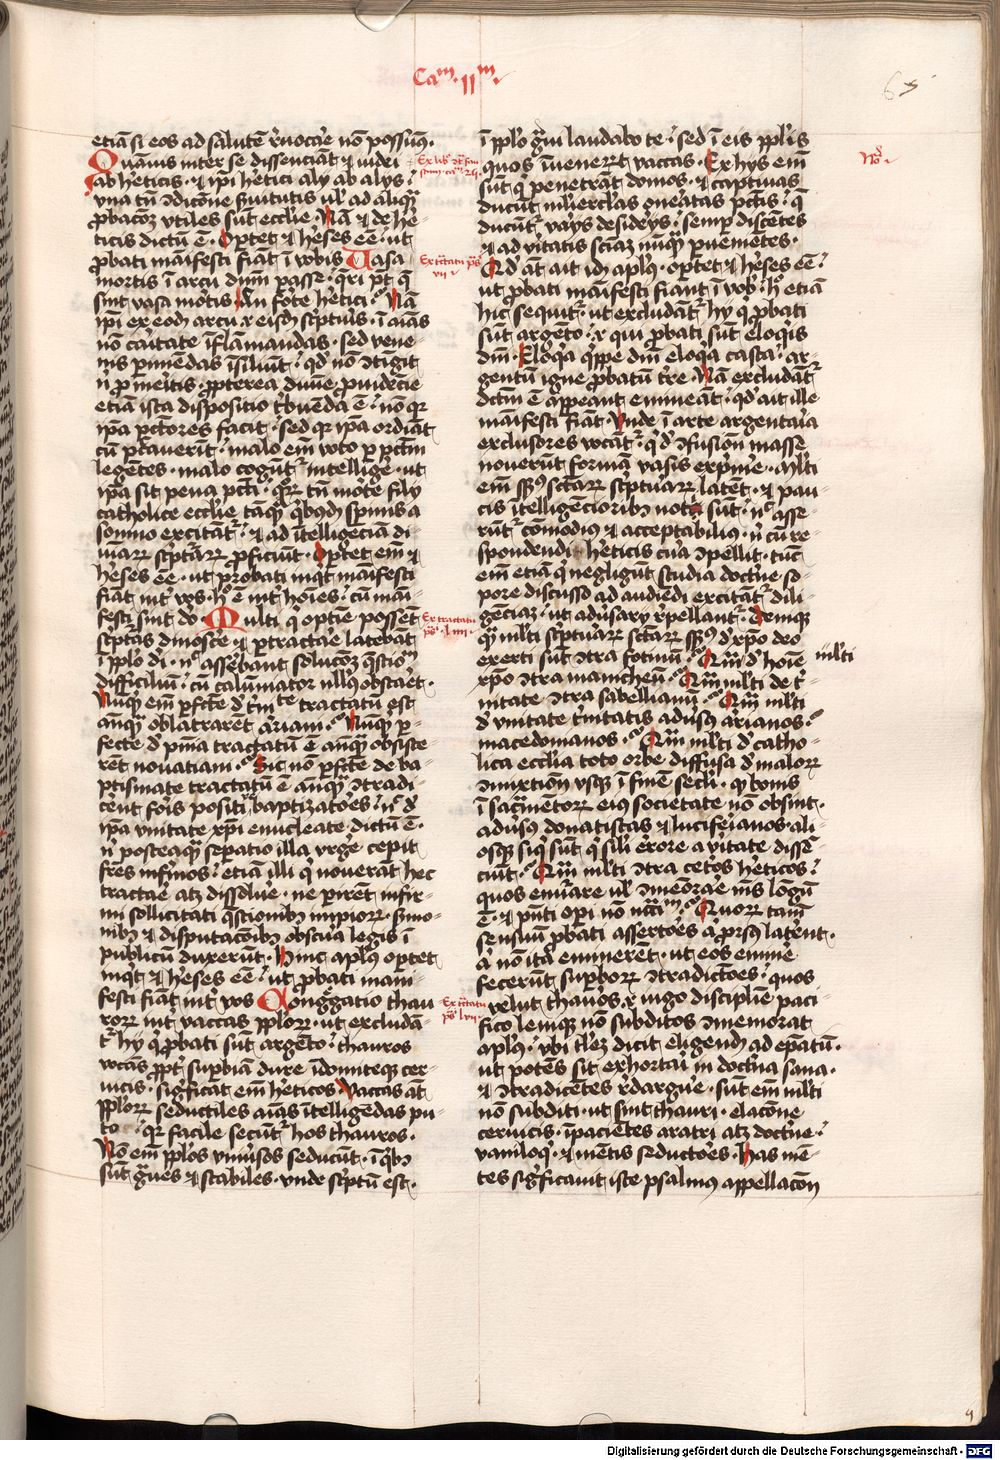 Caᵐ. IIᵐ.
65
etiā si eos ad salutē reuocare nō possunt.
Quāuis inter se dissenciāt et iudei
ab hereticis. et ipi heretici alij ab alijs.
vna tn̄ ꝯdicōne seruitutis ul' ad aliquā
probacōz vtiles sūt ecclīe Nā et de he-
ticis dictū ē. Oportet et hereses eē. ut
probati manifesti fiāt ī vobis Uasa
mortis ī arcu dnm̄ passe. queri pōt que
sint vasa mortis An forte heretici. Nā
ipi ex eodē arcu .i. ex eisdē scripturis. ī aīas
nō caritate īflāmandas. sed vene-
nis perimendas īsiliūt. qd' nō ꝯtīgit
n̄ p meritis. propterea diuīe prouidēcie
etiā ista dispositio tribuenda ē. nō qr
ipa pctōres facit. sed qr ipa ordīat
cū peccauerīt. malo em̄ voto p pctm̄
legētes. male cogūtr intellige. ut
ipa sit pena pcti. qr tn̄ morte filij
catholice ecclīe taqm̄ qbusdā spinis a
somno excitātr. et ad intelligēciā di-
uīarz scripturarz proficiūt. Oportet em̄ et
hereses eē. ut probati inqt manifesti
fiāt īter vos. h° ē īter hoīes. cū mani-
festi sint do. Multi q optīe possēt
scripturas dinoscere et pertractare latebāt
ī pplo di. n° asserebant solucōz qstionū
difficiliū. cū calūniator nullus obstaret.
Nunq em̄ perfcte d' trinitate tractatū est
anqm̄ oblatrarēt arriani. Nunq per-
fecte d' pnia tractatū ē anqm̄ obsiste-
rēt nouatiani. Sic nō perfcte de ba-
ptismate tractatū ē anqm̄ ꝯtradi-
cerēt foris positi baptizatores. n° d'
ipa vnitate xpi enucleate dictū ē.
n' posteaqm̄ seperatio illa vrgere cepit
frēs infirmos. etiā illi q nouerāt hec
tractare atz dissoluere. ne perirēt infir-
mi sollicitati qstionibꝫ impiorz. sermo-
nibꝫ et disputacōibꝫ obscura legis ī
publicū duxerūt. Hinc aplus oportet
inqt et hereses eē. ut probati mani-
festi fiāt īter vos Congregatio thau-
rorz īter vaccas pplorz. ut excludā-
tr hy q probati sūt argēto. thauros
vocās ppt superbiā dure indomiteqz cer-
uicis. significāt em̄ hereticos. Vaccas āt
pplorz seductiles aīas intelligēdas pu-
to. qr facile secūtr hos thauros.
Nō em̄ pplos vniuersos seducūt. ī qbꝫ
sūt graues et stabiles. vnde scriptū est.
Ex lib°
Ex tractatu ps'
vii.
Ex tractatu
ps' liiii.
Ex tractatu
ps' lxvii.
ī pplo graui laudabo te. sed ī eis pplis
quos īuenerūt vaccas. Ex hys em̄
sūt q penetrāt domos. et captiuas
ducūt mulierclas oneratas pctis. q
ducūtr varijs desiderijs. semper discētes
et ad veritatis sciaz nunqm̄ peruenientes.
Qd' āt ait idē aplus. oportet et hereses eē.
ut probati manifesti fiant ī vob. h° etiā
hic sequitr. ut excludātr hy q probati
sūt argēto. .i. qui probati sūt eloquijs
dn̄i. Eloquia quippe dn̄i eloquia casta. ar-
gentū igne probatū terre. Nā excludātr
dictm̄ ē appareant emineant. qd' ait ille
manifesti fiāt. Vnde ī arte argentaria
exclusores vocātr. q d' ꝯfusione masse
nouerūt formā vasis exprimere. Multi
em̄ sensus sctarz scripturarz latēt. et pau-
cis intelligēcioribꝫ noti sūt. n° asse-
rūtr cōmodius et acceptabilius. n' cū re-
spondendi hereticis cura ꝯpellit. tūc
em̄ etiā q negligūt studia doctrine so-
pore discusso ad audiendi excitātr dili-
gēciaz. ut aduersarij repellantr. Denique
qm̄ multi scripturarz sctarz sensus d' xpo deo
exerti sūt ꝯtra fotinū. Qm̄ d' hoīe
xpo ꝯtra manicheū. Qm̄ multi de tri-
nitate ꝯtra sabellianū. Qm̄ multi
d' vnitate trinitatis aduersus arrianos.
macedonianos. Qm̄ multi d' catho-
lica ecclīa toto orbe diffusa d' malorz
ꝯmixtion vsqz ī finē secli. q bonis
ī sacramētorz eius societate nō obsint.
aduersus donatistas et luciferianos. ali-
osqz siq sūt q simili errore a veritate dissē-
ciūt. Qm̄ multi ꝯtra ceteros hereticos.
quos enumerare ul' ꝯmemorare nimis longū
ē. et pn̄ti operi nō nccm̄. Quorz tam̄
sensuū probati assertores aut prorsus laterent.
aut nō ita eminerēt. ut eos eminere
fecerūt superborz ꝯtradictōes. quos
velut thauros .i. iugo discipline paci-
fico leniqz nō subditos ꝯmemorat
aplus. vbi talez dicit eligendū ad epatū.
ut potēs sit exhortari in doctrina sana.
et ꝯtradicētes redarguere. sūt em̄ multi
nō subditi. ut sint thauri. elacōne
ceruicis. īpacientes aratri atz doctrine.
vaniloqui. et mentis seductores. Has mē-
tes significauit iste psalmus appellacōn
Nō.
multi
9
Digitalisierung gefördert durch die Deutsche Forschungsgemeinschaft - DFG